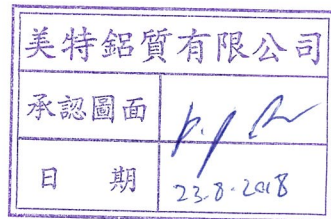 美特鋁質有限公司
承認圖面
日 期 23.8.2018